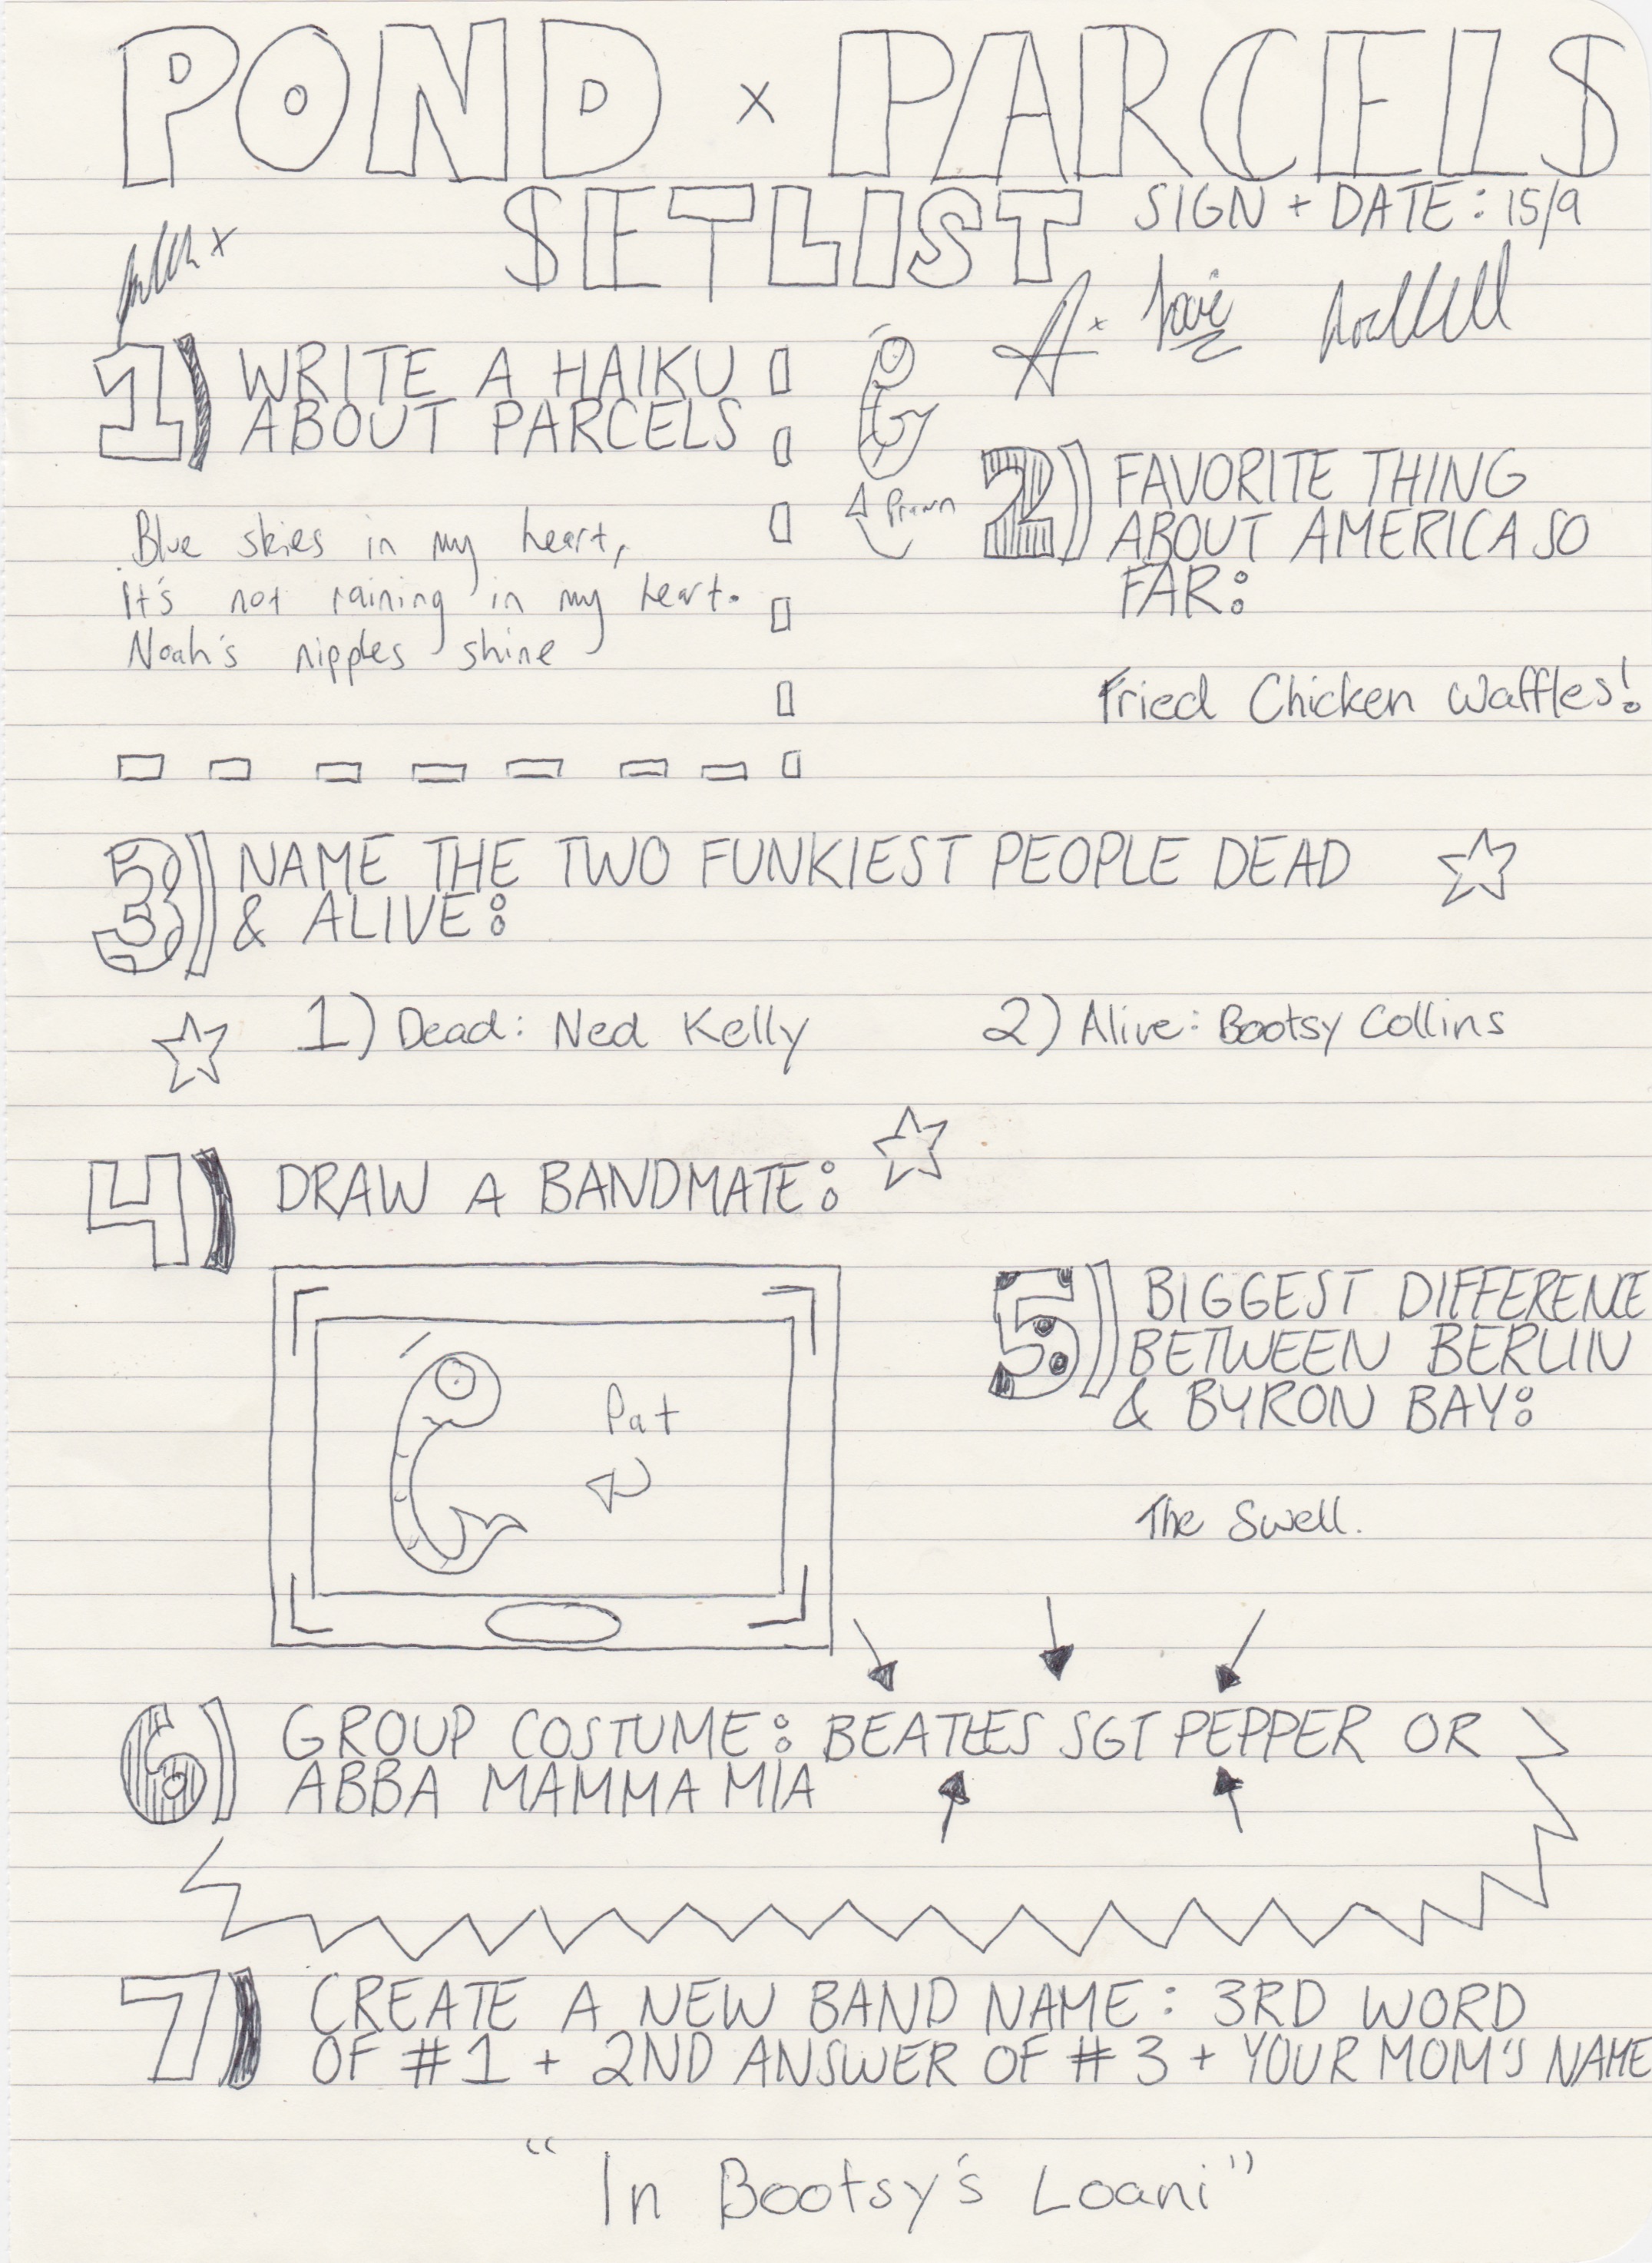 POND x PARCELS
SETLIST
SIGN + DATE: 15/9
1) WRITE A HAIKU
ABOUT PARCELS
Blue skies in my heart,
it's not raining in my heart.
Noah's nipples shine
Prawn
2) FAVORITE THING
ABOUT AMERICA SO
FAR:
Fried Chicken Waffles!
3) NAME THE TWO FUNKIEST PEOPLE DEAD
& ALIVE:
1) Dead: Ned Kelly
2) Alive: Bootsy Collins
4) DRAW A BANDMATE:
Pat
5) BIGGEST DIFFERENCE
BETWEEN BERLIN
& BYRON BAY:
The Swell.
6) GROUP COSTUME: BEATLES SGT PEPPER OR
ABBA MAMMA MIA
7) CREATE A NEW BAND NAME: 3RD WORD
OF #1 + 2ND ANSWER OF #3 + YOUR MOM'S NAME
"In Bootsy's Loani"